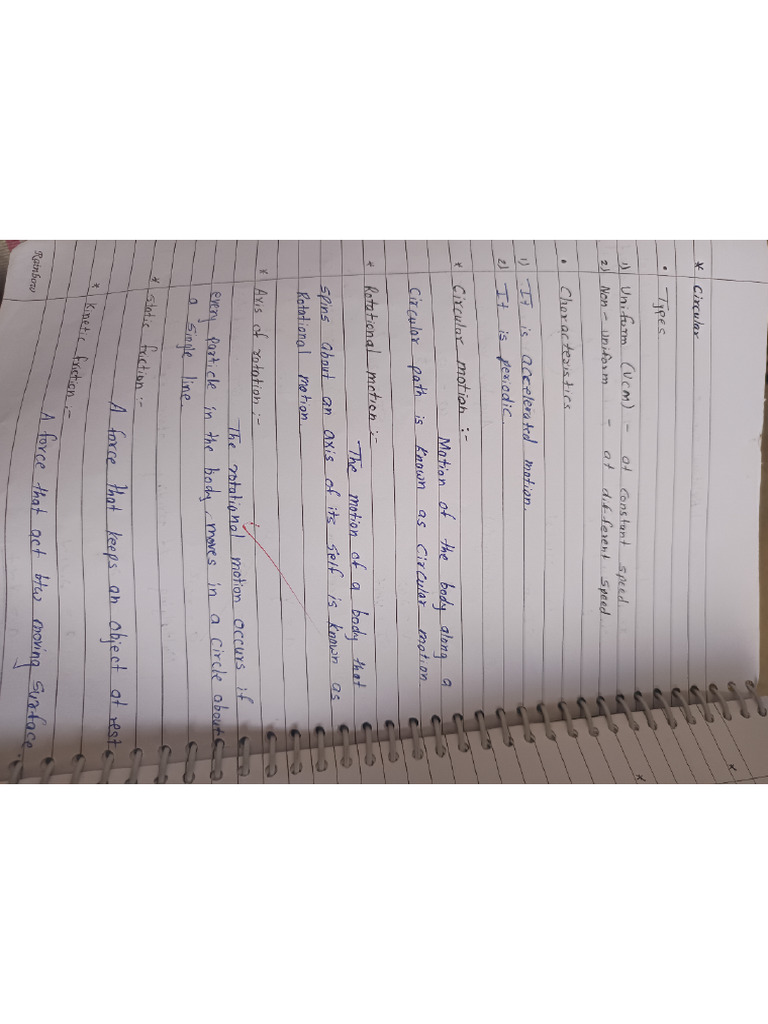 * Circular
• Types
1) Uniform (Ucm) - at constant speed.
2) Non-uniform - at different speed.
• Characteristics
1) It is accelerated motion.
2) It is periodic.
* Circular motion :-
Motion of the body along a
Circular path is known as circular motion
* Rotational motion :-
The motion of a body that
spins about an axis of its self is known as
Rotational motion
* Axis of rotation :-
The rotational motion occurs if
every particle in the body, moves in a circle about
a single line.
* static friction :-
A force that keeps an object at rest
* kinetic friction :-
A force that act btw moving surface.
Rainbow